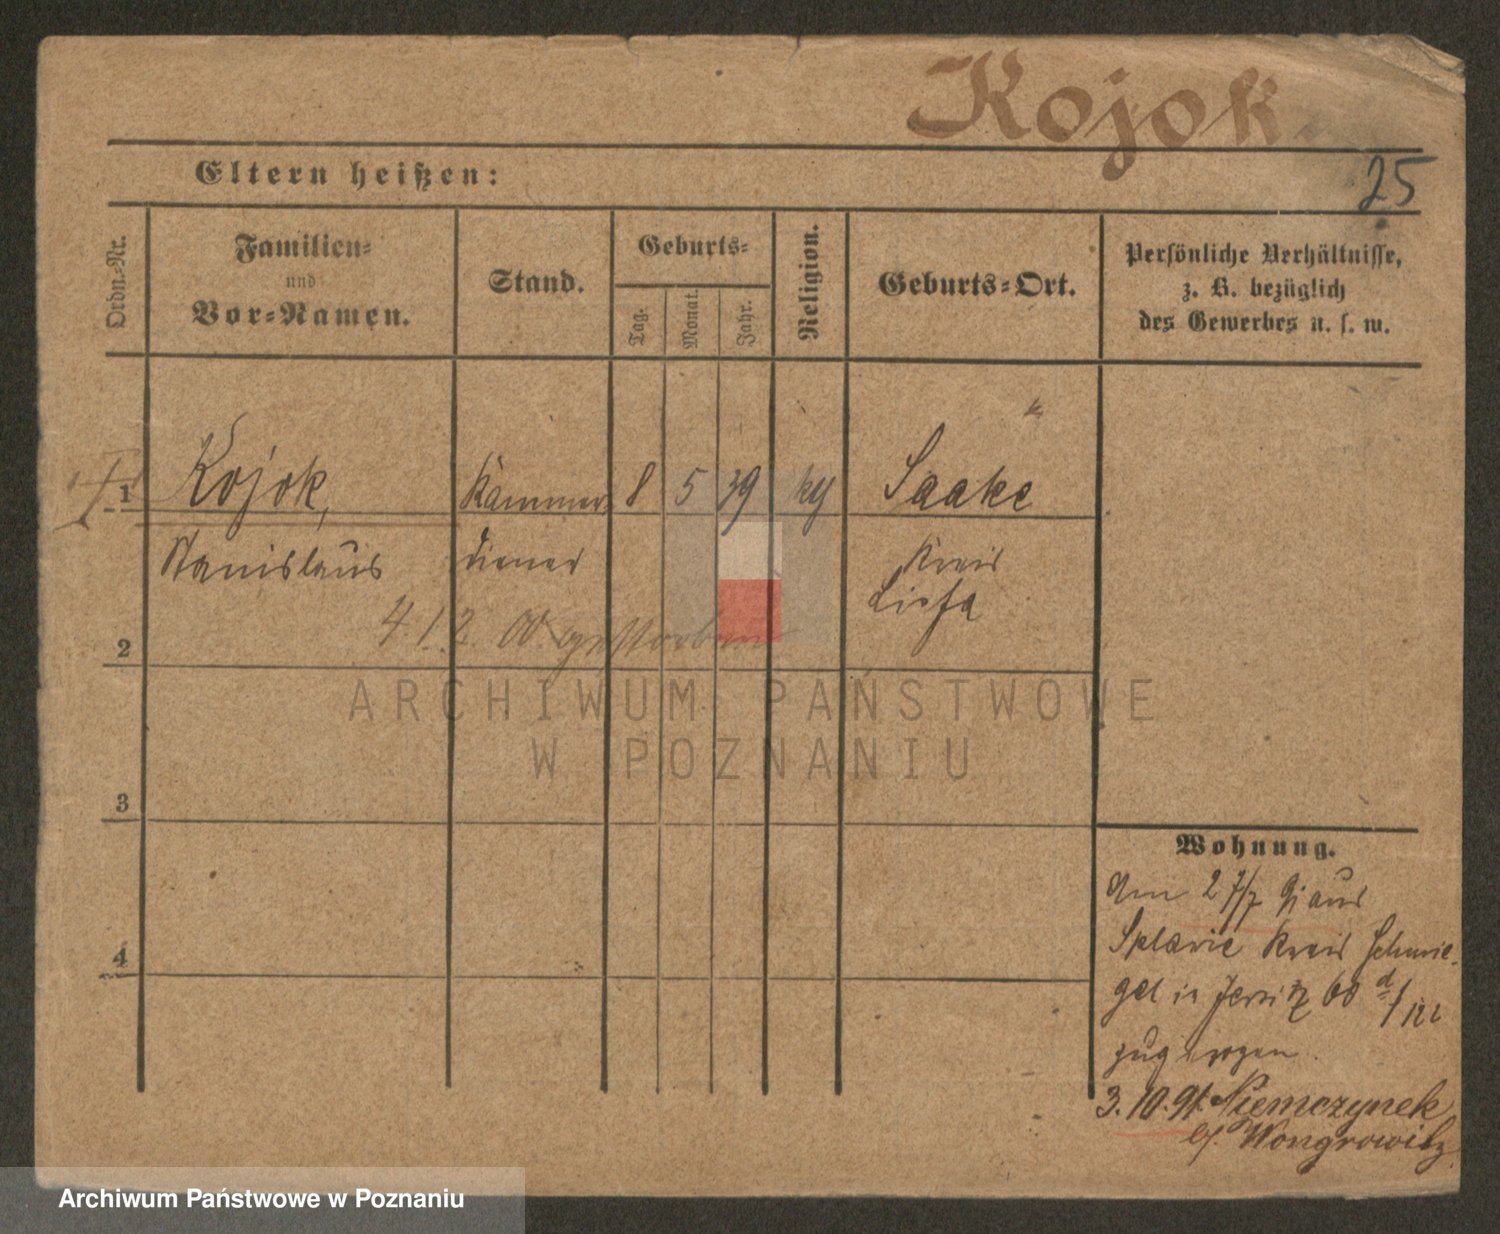 Kojok
25
Eltern heißen:
Ordn.-Nr.
Familien-
und
Vor-Namen.
Stand.
Geburts-
Tag.
Monat.
Jahr.
Religion.
Geburts-Ort.
Persönliche Verhältnisse,
z. B. bezüglich
des Gewerbes u. s. w.
1
Kojok,
Kammer
8
5
39
Saake
Stanislaus
diener
Kreis
Lissa
2
4 12. 00 gestorben
ARCHIWUM PAŃSTWOWE
W POZNANIU
3
4
Wohnung.
Am 27/7 91 aus
Kreis Schmie-
gel in Jersitz
zugezogen.
3. 10. 91. Niemczynek
Wongrowitz
Archiwum Państwowe w Poznaniu